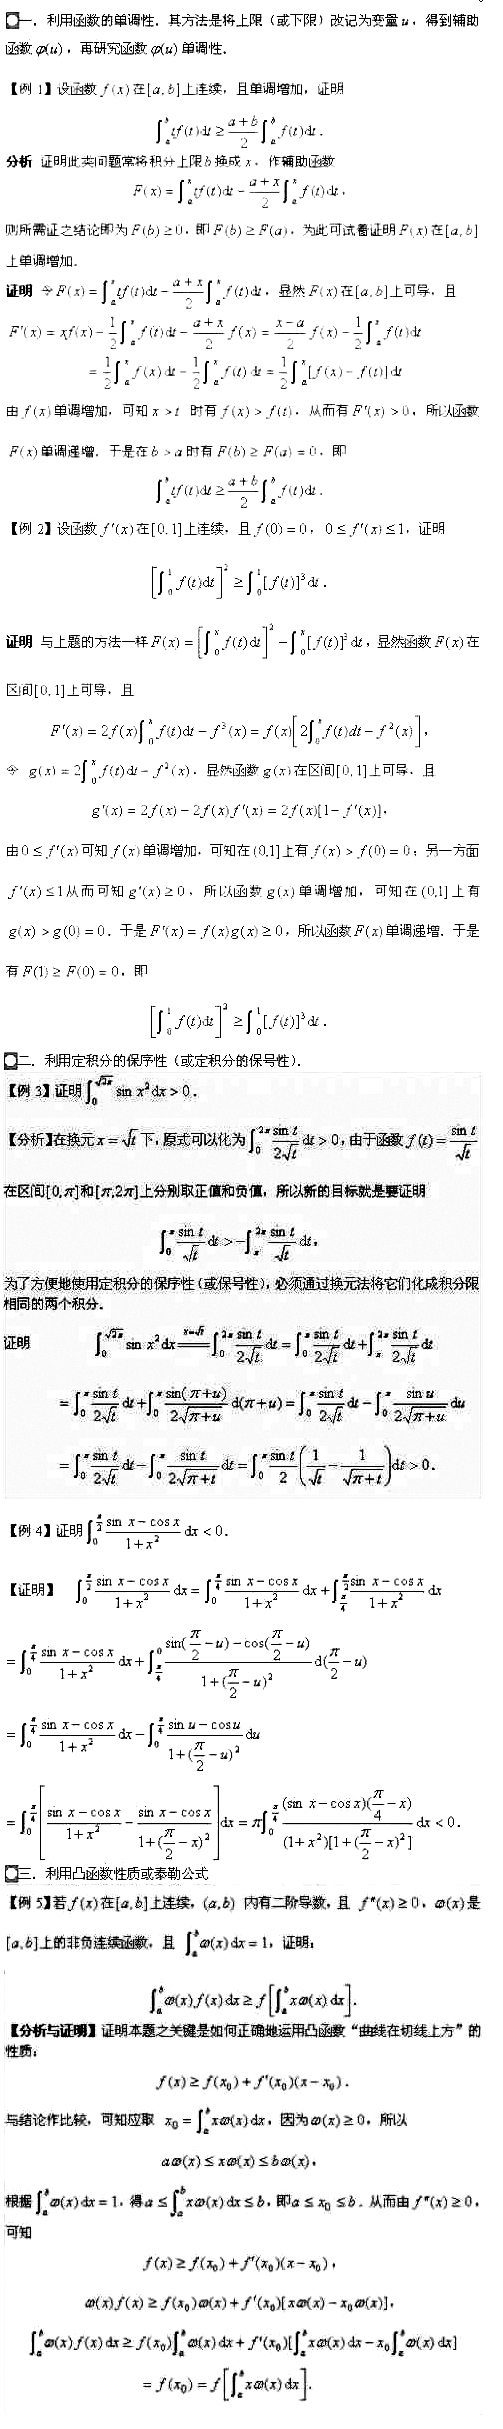 一．利用函数的单调性．其方法是将上限（或下限）改记为变量 u，得到辅助
函数 φ(u)，再研究函数 φ(u) 单调性．
【例 1】设函数 f(x) 在 [a, b] 上连续，且单调增加，证明
∫_a^b tf(t)dt ≥ (a+b)/2 ∫_a^b f(t)dt．
分析 证明此类问题常将积分上限 b 换成 x，作辅助函数
F(x) = ∫_a^x tf(t)dt − (a+x)/2 ∫_a^x f(t)dt，
则所需证之结论即为 F(b) ≥ 0，即 F(b) ≥ F(a)，为此可试着证明 F(x) 在 [a, b]
上单调增加．
证明 令 F(x) = ∫_a^x tf(t)dt − (a+x)/2 ∫_a^x f(t)dt，显然 F(x) 在 [a, b] 上可导，且
F'(x) = xf(x) − 1/2 ∫_a^x f(t)dt − (a+x)/2 f(x) = (x−a)/2 f(x) − 1/2 ∫_a^x f(t)dt
= 1/2 ∫_a^x f(x)dt − 1/2 ∫_a^x f(t)dt = 1/2 ∫_a^x [f(x) − f(t)]dt
由 f(x) 单调增加，可知 x > t 时有 f(x) > f(t)，从而有 F'(x) > 0，所以函数
F(x) 单调递增．于是在 b > a 时有 F(b) ≥ F(a) = 0，即
∫_a^b tf(t)dt ≥ (a+b)/2 ∫_a^b f(t)dt．
【例 2】设函数 f'(x) 在 [0, 1] 上连续，且 f(0) = 0，0 ≤ f'(x) ≤ 1，证明
[∫_0^1 f(t)dt]^2 ≥ ∫_0^1 [f(t)]^3 dt．
证明 与上题的方法一样 F(x) = [∫_0^x f(t)dt]^2 − ∫_0^x [f(t)]^3 dt，显然函数 F(x) 在
区间 [0, 1] 上可导，且
F'(x) = 2f(x)∫_0^x f(t)dt − f^3(x) = f(x)[2∫_0^x f(t)dt − f^2(x)]，
令 g(x) = 2∫_0^x f(t)dt − f^2(x)．显然函数 g(x) 在区间 [0, 1] 上可导，且
g'(x) = 2f(x) − 2f(x)f'(x) = 2f(x)[1 − f'(x)]，
由 0 ≤ f'(x) 可知 f(x) 单调增加，可知在 (0,1] 上有 f(x) > f(0) = 0；另一方面
f'(x) ≤ 1 从而可知 g'(x) ≥ 0，所以函数 g(x) 单调增加，可知在 (0,1] 上有
g(x) > g(0) = 0．于是 F'(x) = f(x)g(x) ≥ 0，所以函数 F(x) 单调递增．于是
有 F(1) ≥ F(0) = 0，即
[∫_0^1 f(t)dt]^2 ≥ ∫_0^1 [f(t)]^3 dt．
二．利用定积分的保序性（或定积分的保号性）．
【例 3】证明 ∫_0^√(2π) sin x^2 dx > 0．
【分析】在换元 x = √t 下，原式可以化为 ∫_0^2π sin t/(2√t) dt > 0，由于函数 f(t) = sin t/√t
在区间 [0, π] 和 [π, 2π] 上分别取正值和负值，所以新的目标就是要证明
∫_0^π sin t/√t dt > −∫_π^2π sin t/√t dt，
为了方便地使用定积分的保序性（或保号性），必须通过换元法将它们化成积分限
相同的两个积分．
证明 ∫_0^√(2π) sin x^2 dx =(x=√t)= ∫_0^2π sin t/(2√t) dt = ∫_0^π sin t/(2√t) dt + ∫_π^2π sin t/(2√t) dt
= ∫_0^π sin t/(2√t) dt + ∫_0^π sin(π+u)/(2√(π+u)) d(π+u) = ∫_0^π sin t/(2√t) dt − ∫_0^π sin u/(2√(π+u)) du
= ∫_0^π sin t/(2√t) dt − ∫_0^π sin t/(2√(π+t)) dt = ∫_0^π sin t/2 (1/√t − 1/√(π+t)) dt > 0．
【例 4】证明 ∫_0^(π/2) (sin x − cos x)/(1+x^2) dx < 0．
【证明】 ∫_0^(π/2) (sin x − cos x)/(1+x^2) dx = ∫_0^(π/4) (sin x − cos x)/(1+x^2) dx + ∫_(π/4)^(π/2) (sin x − cos x)/(1+x^2) dx
= ∫_0^(π/4) (sin x − cos x)/(1+x^2) dx + ∫_(π/4)^0 (sin(π/2 − u) − cos(π/2 − u))/(1+(π/2 − u)^2) d(π/2 − u)
= ∫_0^(π/4) (sin x − cos x)/(1+x^2) dx − ∫_0^(π/4) (sin u − cos u)/(1+(π/2 − u)^2) du
= ∫_0^(π/4) [(sin x − cos x)/(1+x^2) − (sin x − cos x)/(1+(π/2 − x)^2)] dx = π∫_0^(π/4) (sin x − cos x)(π/4 − x)/((1+x^2)[1+(π/2 − x)^2]) dx < 0．
三．利用凸函数性质或泰勒公式
【例 5】若 f(x) 在 [a, b] 上连续，(a, b) 内有二阶导数，且 f''(x) ≥ 0，ω(x) 是
[a, b] 上的非负连续函数，且 ∫_a^b ω(x)dx = 1，证明：
∫_a^b ω(x)f(x)dx ≥ f[∫_a^b xω(x)dx]．
【分析与证明】证明本题之关键是如何正确地运用凸函数“曲线在切线上方”的
性质：
f(x) ≥ f(x₀) + f'(x₀)(x − x₀)．
与结论作比较，可知应取 x₀ = ∫_a^b xω(x)dx，因为 ω(x) ≥ 0，所以
aω(x) ≤ xω(x) ≤ bω(x)，
根据 ∫_a^b ω(x)dx = 1，得 a ≤ ∫_a^b xω(x)dx ≤ b，即 a ≤ x₀ ≤ b．从而由 f''(x) ≥ 0，
可知
f(x) ≥ f(x₀) + f'(x₀)(x − x₀)，
ω(x)f(x) ≥ f(x₀)ω(x) + f'(x₀)[xω(x) − x₀ω(x)]，
∫_a^b ω(x)f(x)dx ≥ f(x₀)∫_a^b ω(x)dx + f'(x₀)[∫_a^b xω(x)dx − x₀∫_a^b ω(x)dx]
= f(x₀) = f[∫_a^b xω(x)dx]．